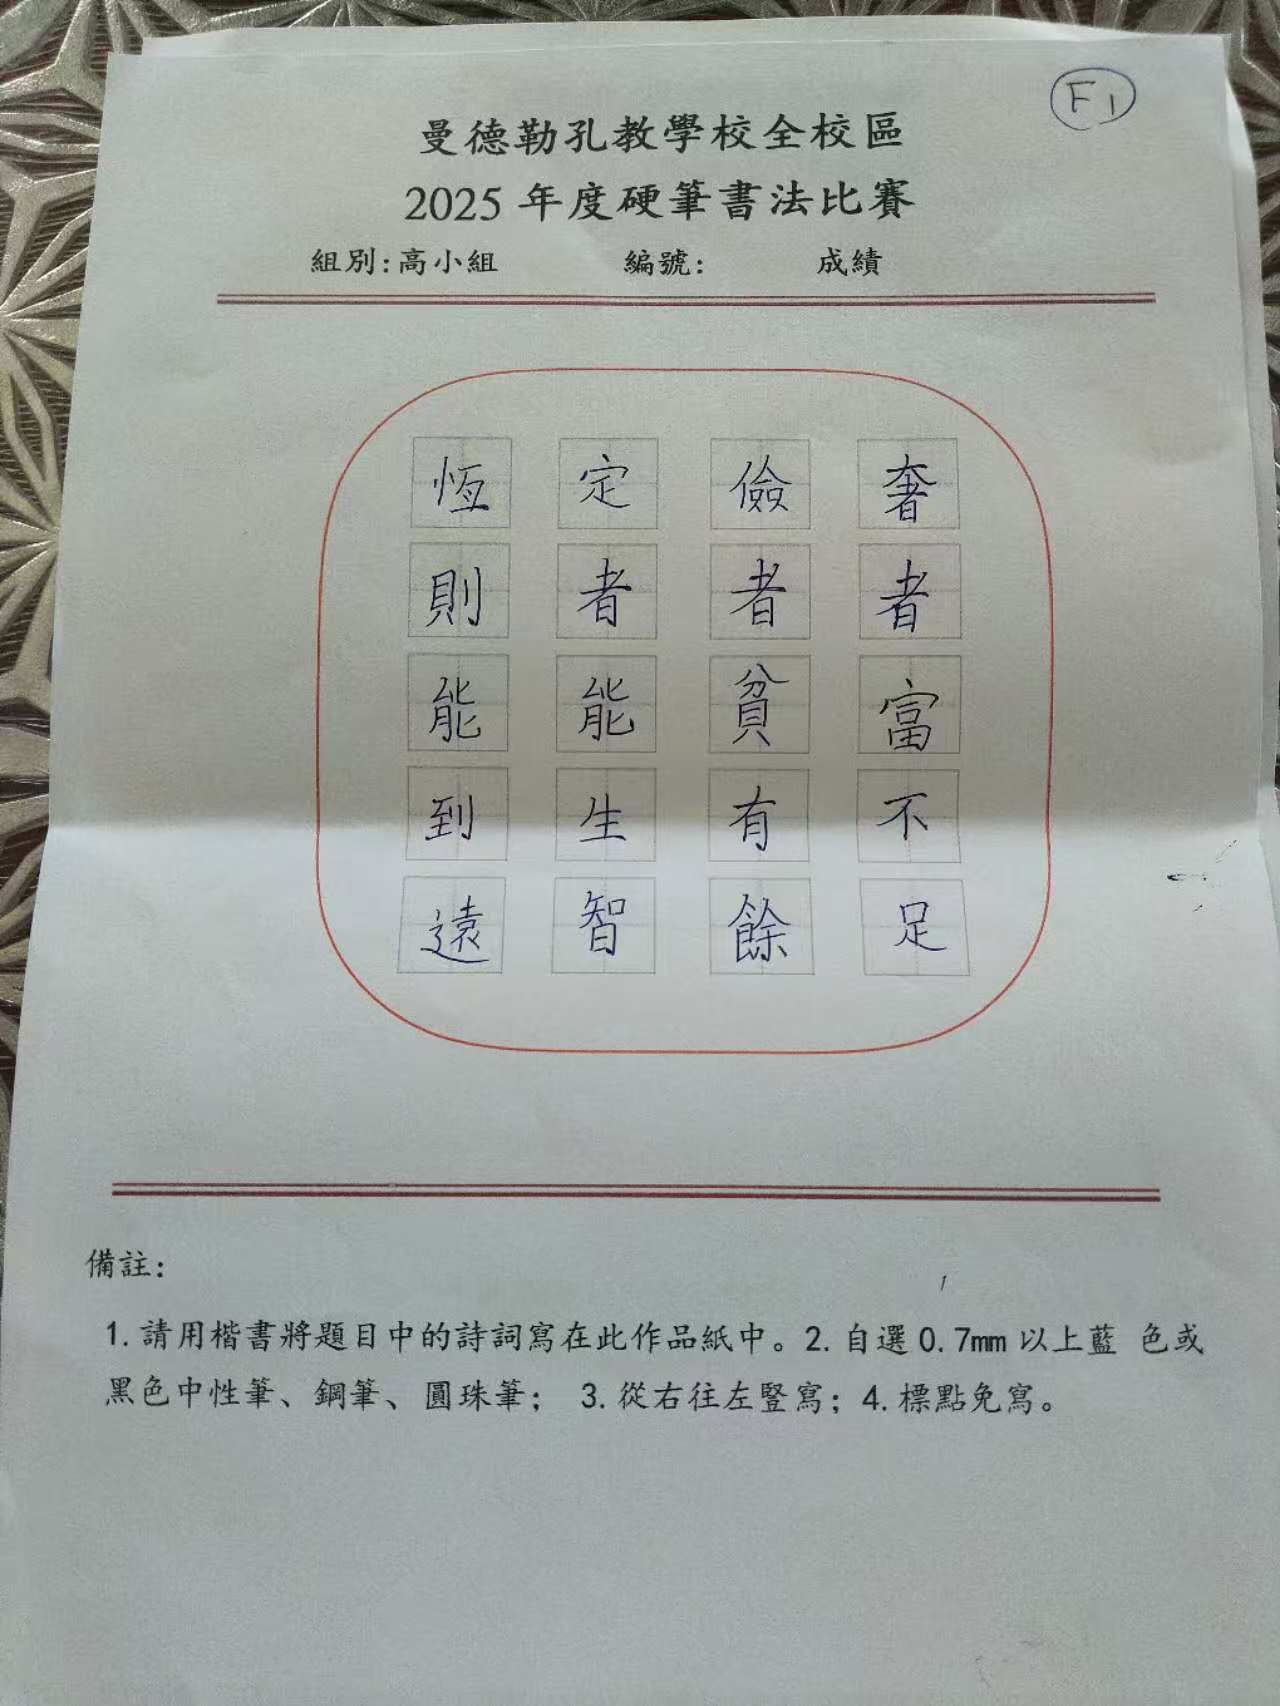 F1
曼德勒孔教學校全校區
2025年度硬筆書法比賽
組別:高小組 編號: 成績
奢者富不足
儉者貧有餘
定者能生智
恆則能到遠
備註:
1.請用楷書將題目中的詩詞寫在此作品紙中。2.自選0.7mm以上藍 色或
黑色中性筆、鋼筆、圓珠筆; 3.從右往左豎寫;4.標點免寫。